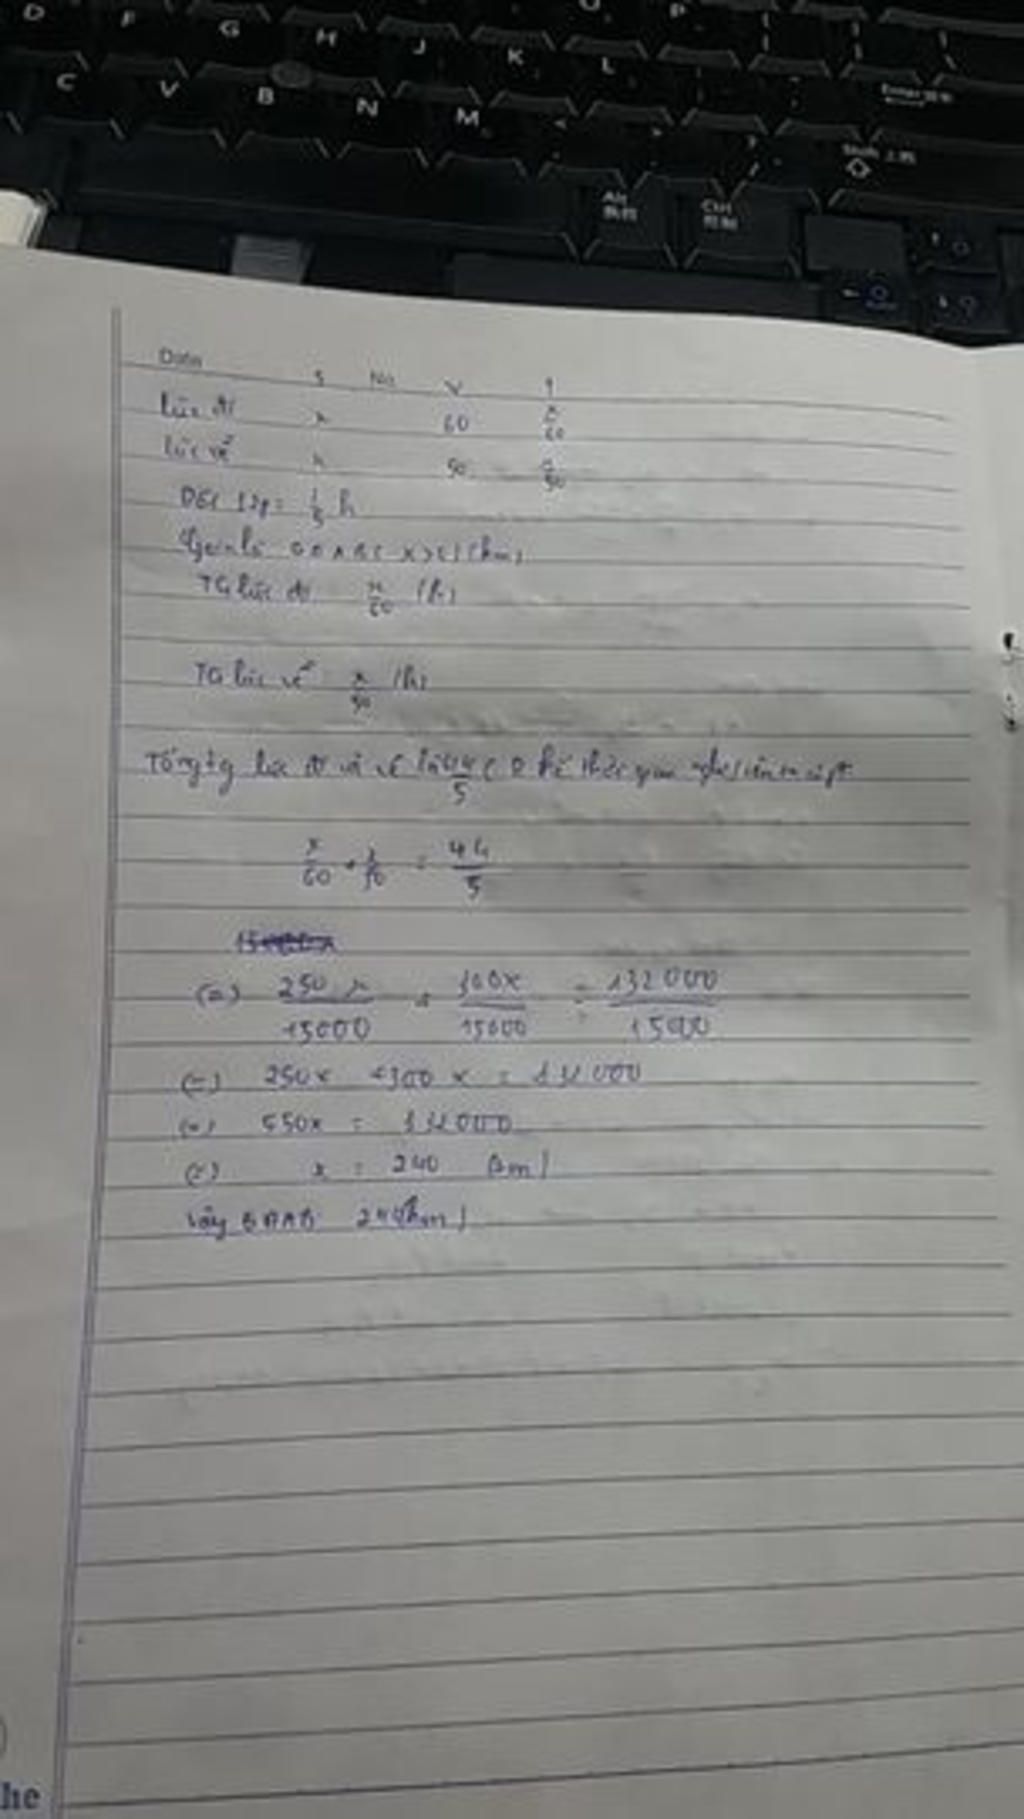 D F G H J K L O P
C V B N M < > ? Enter
Shift
Alt Ctrl
Date S No V t
lúc đi x 60 x/60
lúc về x 50 x/50
= 1/5 h
Gọi là QĐ AB ( x > 0 ) (km)
TG lúc đi x/60 (h)
TG lúc về x/50 (h)
Tổng tg lúc đi và về là 44/5
x/60 + x/50 = 44/5
(=) 250x/15000 + 300x/15000 = 132000/15000
(=) 250x + 300x = 132000
(=) 550x = 132000
(=) x = 240 (km)
Vậy QĐAB 240(km)
he